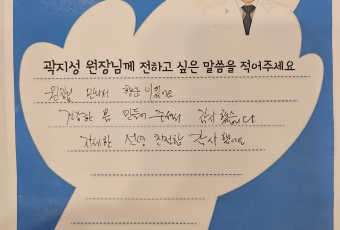 곽지성 원장님께 전하고 싶은 말씀을 적어주세요
원장님 만나서 행운이었어요
건강한 몸 만들어 주셔서 감사했습니다
자세한 설명 친절함 감사했어요